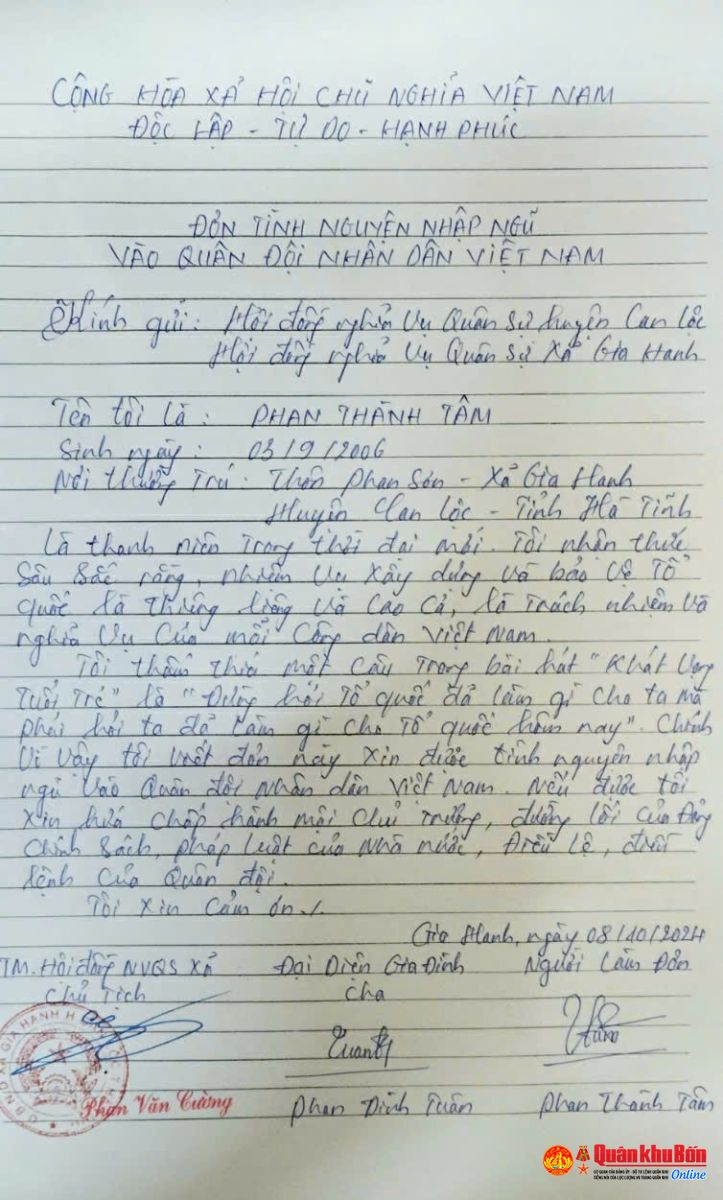 CỘNG HÒA XẢ HỘI CHŨ NGHĨA VIỆT NAM
ĐỘC LẬP - TỰ DO - HẠNH PHÚC
ĐƠN TÌNH NGUYỆN NHẬP NGŨ
VÀO QUÂN ĐỘI NHÂN DÂN VIỆT NAM
Kính gửi: Hội đồng nghĩa Vụ Quân Sự huyện Can Lộc
Hội đồng nghĩa Vụ Quân Sự Xả Gia Hanh
Tên tôi là : PHAN THÀNH TÂM
Sinh ngày : 03/9/2006
Nơi thường Trú : Thôn Phan Sơn - Xả Gia Hanh
Huyện Can Lộc - Tỉnh Hà Tĩnh
Là thanh niên trong thời đại mới. Tôi nhận thức
Sâu Sắc rằng, nhiệm vụ Xây dựng và bảo vệ Tổ
quốc là thiêng liêng và Cao Cả, là Trách nhiệm và
nghĩa vụ Của mỗi Công dân Việt Nam.
Tôi thấm thía một Câu Trong bài hát "Khát Vọng
Tuổi Trẻ" là "Đừng hỏi Tổ quốc đả làm gì Cho ta mà
phải hỏi ta đả làm gì cho Tổ quốc hôm nay". Chính
Vì Vậy tôi viết đơn này Xin được tình nguyện nhập
ngủ Vào Quân đội Nhân dân Việt Nam. Nếu được tôi
Xin hứa Chấp hành mọi Chủ Trương, đường lối của Đảng
Chính Sách, pháp luật của Nhà nước, Điều Lệ, điều
lệnh Của Quân đội.
Tôi Xin Cảm ơn./.
Gia Hanh, ngày 08/10/2024
TM. Hội đồng NVQS Xả
Đại Diện Gia Đình
Người Làm Đơn
Chủ Tịch
Cha
Phan Văn Cường
Phan Đình Tuân
Phan Thành Tâm
Quân khu Bốn
Online